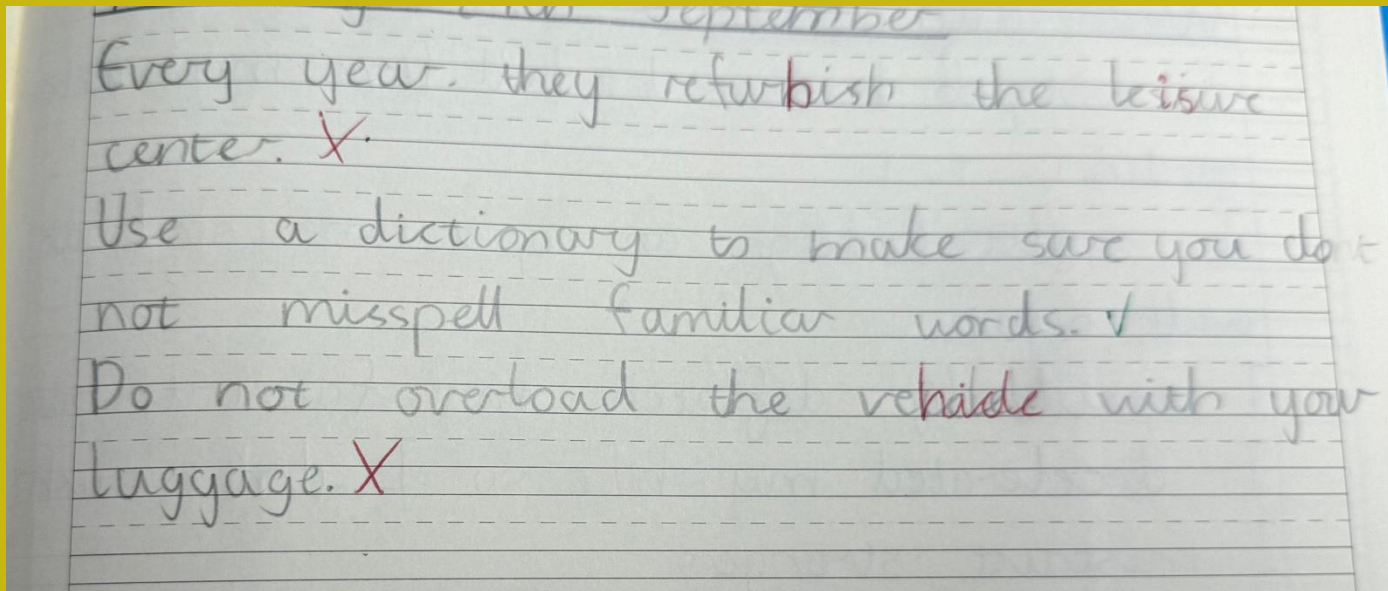 September
Every year they refurbish the leisure
center. X
Use a dictionary to make sure you do
not misspell familiar words. ✓
Do not overload the vehicle with your
luggage. X